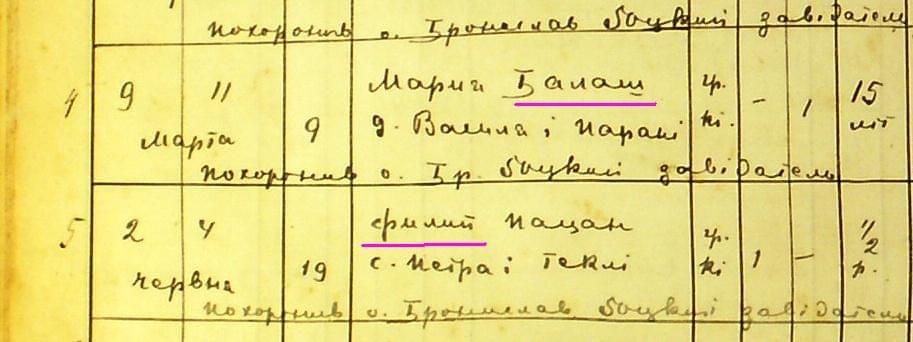 похоронив о. Броніслав Боцкий завідатель
4 9 11 Мария Балаш гр. - 1 15
Марта 9 д. Василя і Парані кт. літ
похоронив о. Бр. Боцкий завідатель
5 2 4 Филип Пацан гр. 1 - 1/2
червня 19 с. Петра і Теклі кт. р.
похоронив о. Броніслав Боцкий завідатель